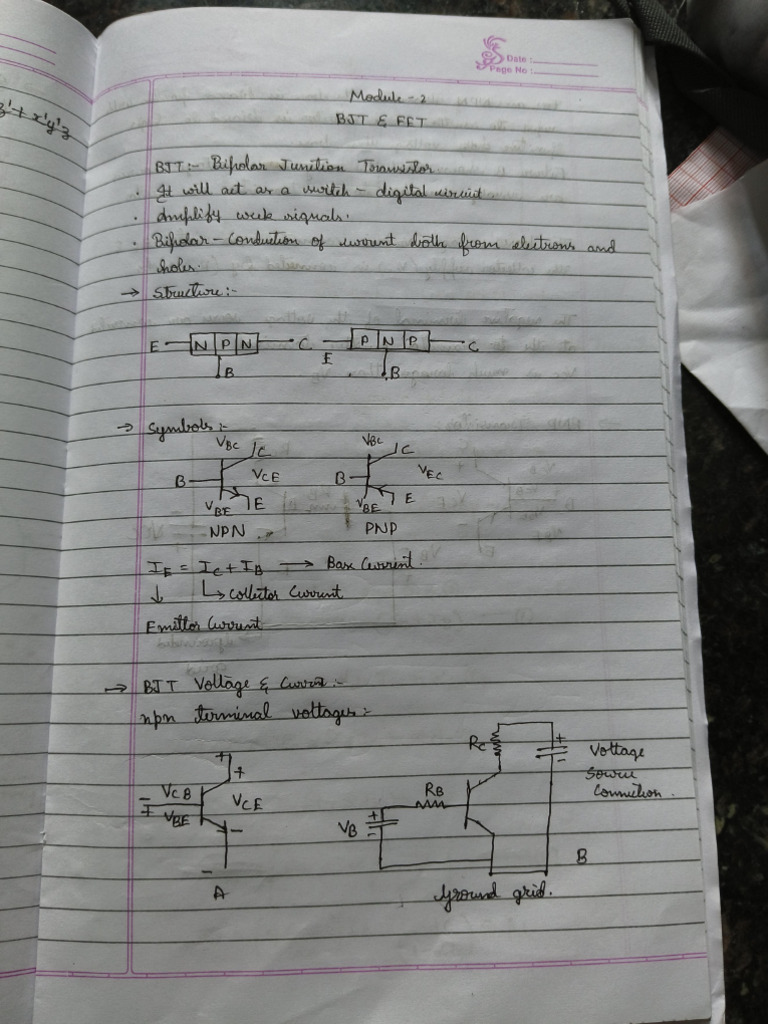 z' + x'y'z
Date :
Page No :
Module - 2
BJT & FET
BJT :- Bipolar Junction Transistor
. It will act as a switch - digital circuit
. Amplify weak signals.
. Bipolar - Conduction of current both from electrons and
holes.
→ Structure :-
E N P N C E P N P C
B B
→ Symbols :-
VBC C VBC C
B VCE B VEC
VBE E VBE E
NPN PNP
IE = IC + IB → Base Current.
↓ ↳ Collector Current
Emitter Current
→ BJT Voltage & Current :-
npn terminal voltages :-
+ RC + Voltage
VCB + - Source
VBE VCE RB Connection.
- VB + -
- B
A Ground grid.